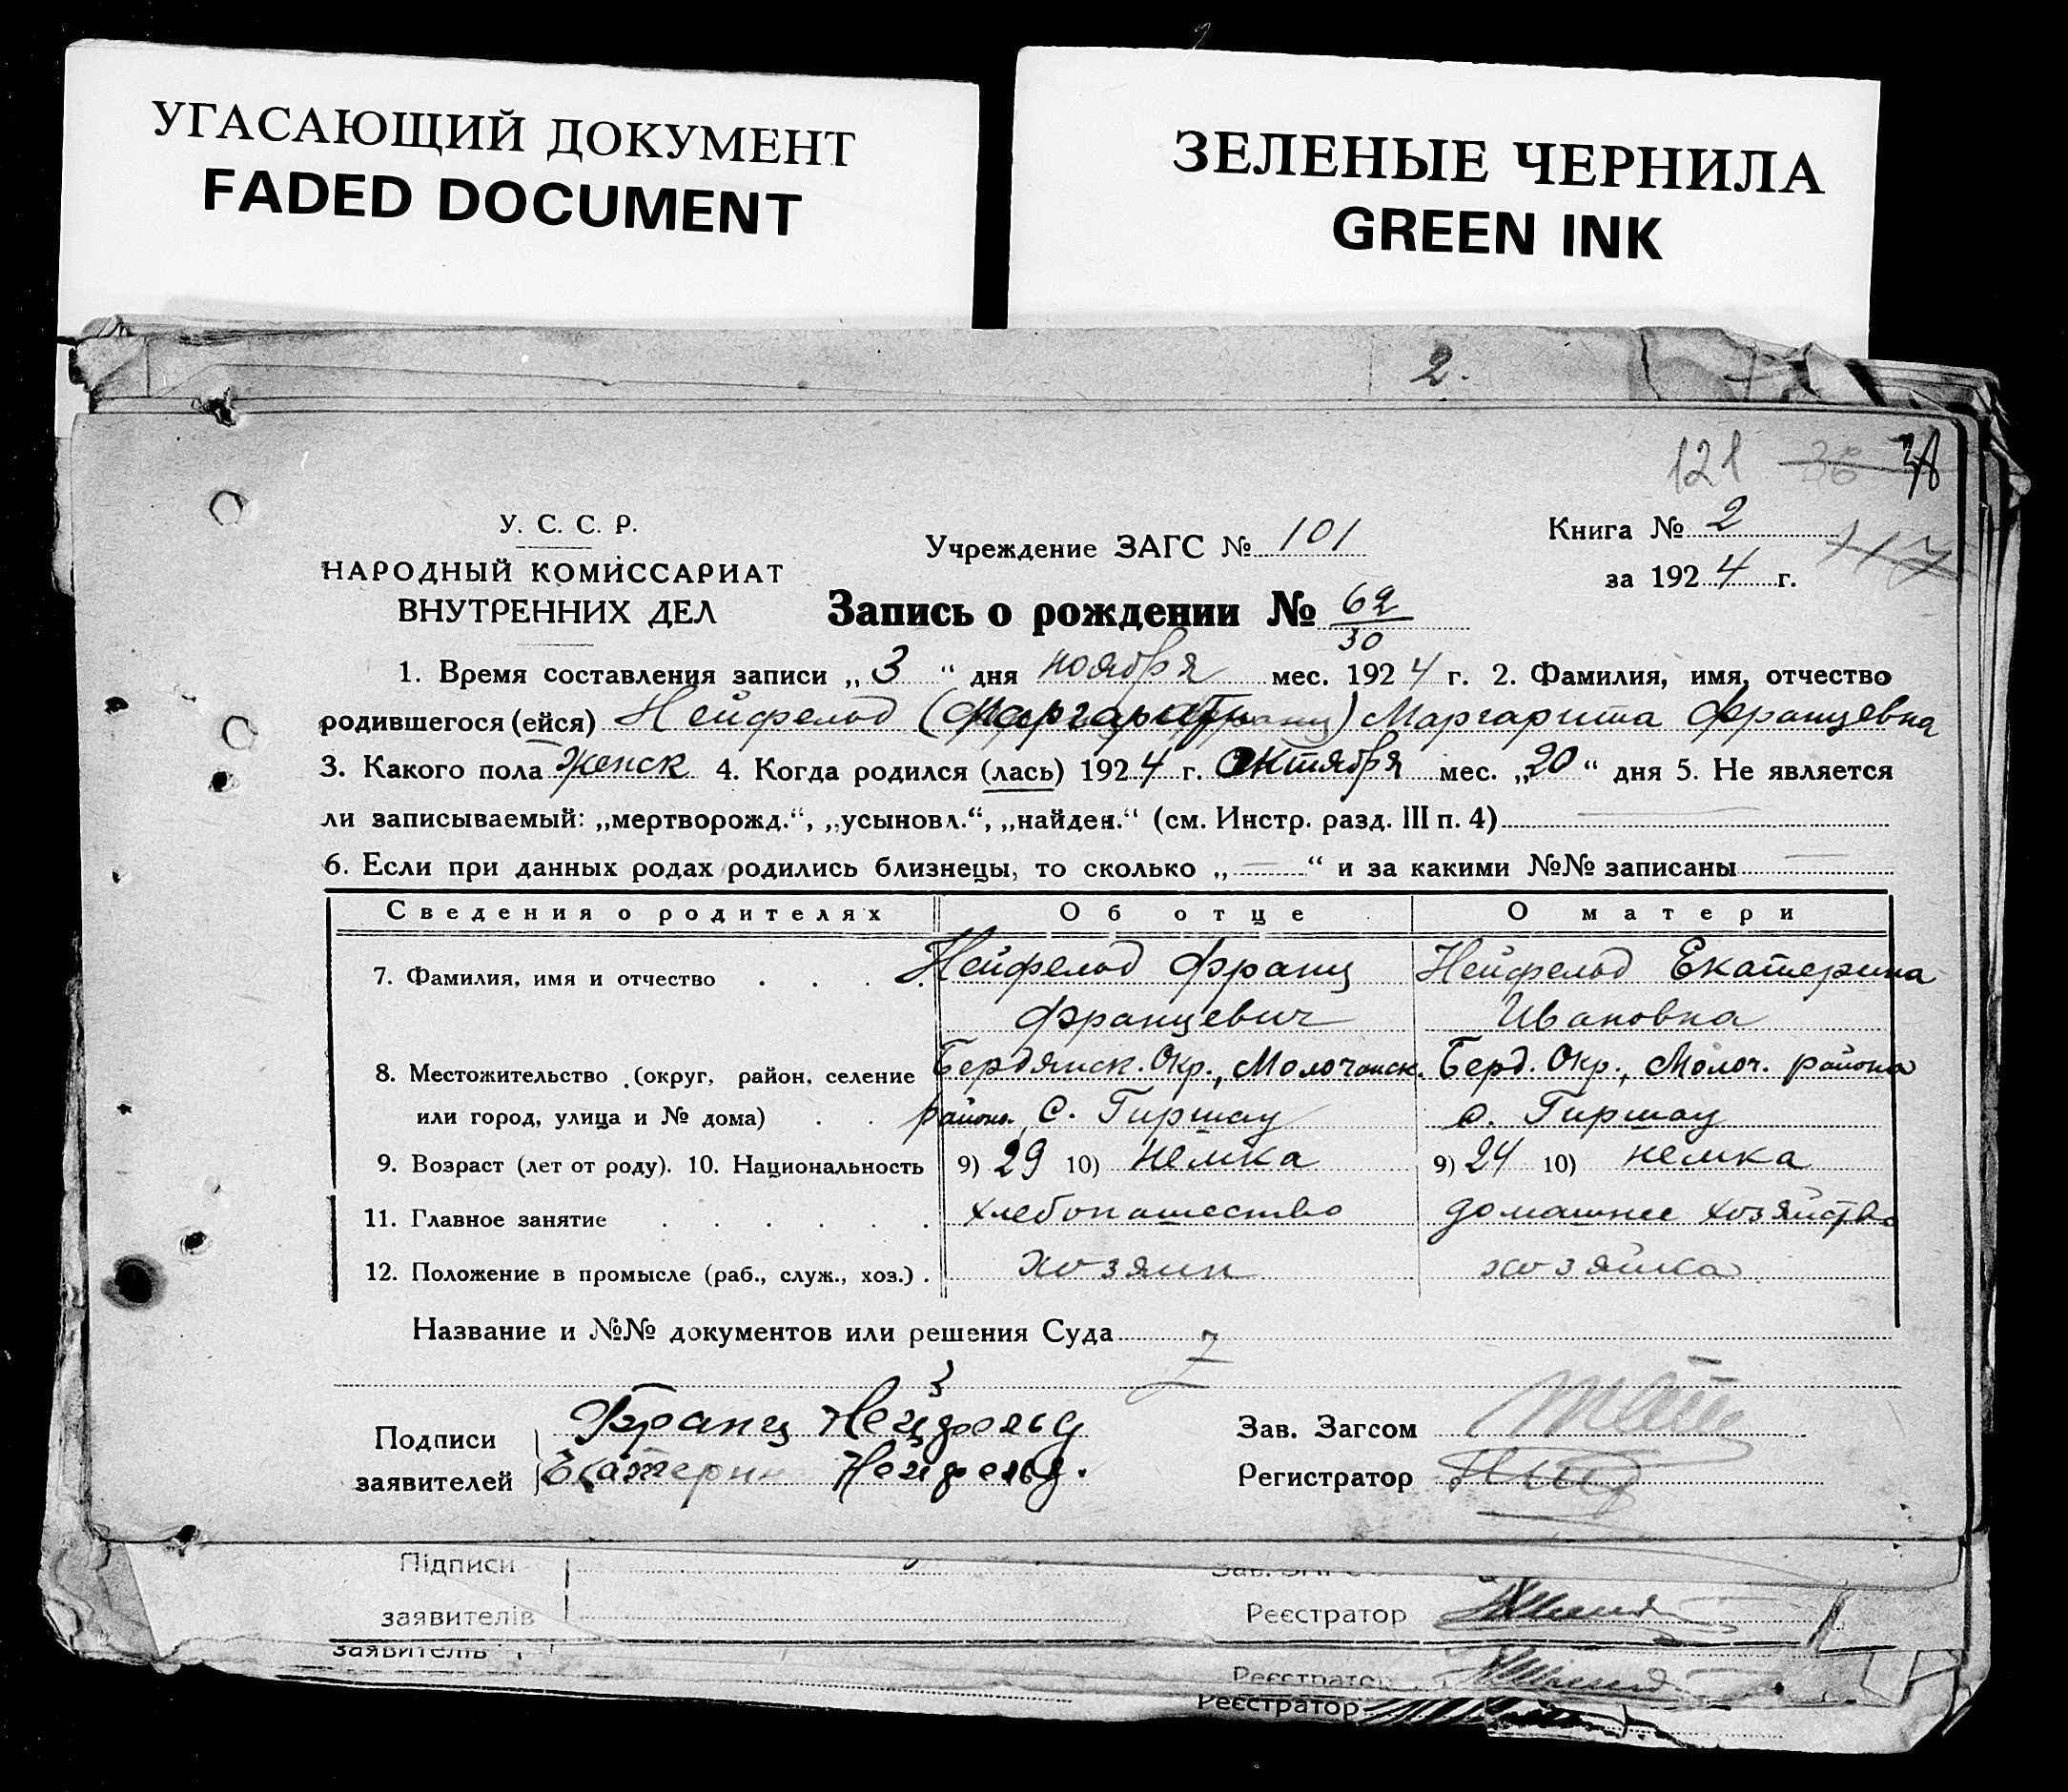 УГАСАЮЩИЙ ДОКУМЕНТ
FADED DOCUMENT
ЗЕЛЕНЫЕ ЧЕРНИЛА
GREEN INK
2.
121 36
У. С. С. Р.
НАРОДНЫЙ КОМИССАРИАТ
ВНУТРЕННИХ ДЕЛ
Учреждение ЗАГС № 101
Книга № 2
117
за 1924 г.
Запись о рождении № 62/30
1. Время составления записи „ 3 “ дня ноября мес. 1924 г. 2. Фамилия, имя, отчество
родившегося (ейся) Нейфельд ( ) Маргарита Францевна
3. Какого пола женск 4. Когда родился (лась) 1924 г. Октября мес. „20“ дня 5. Не является
ли записываемый: „мертворожд.“, „усыновл.“, „найден.“ (см. Инстр. разд. III п. 4)
6. Если при данных родах родились близнецы, то сколько „ — “ и за какими №№ записаны —
Сведения о родителях Об отце О матери
7. Фамилия, имя и отчество . . . . Нейфельд Франц Нейфельд Екатерина
Францевич Ивановна
8. Местожительство (округ, район, селение Бердянск. Окр., Молочанск. Берд. Окр., Молоч. района
или город, улица и № дома) . . района, с. Гиршау с. Гиршау
9. Возраст (лет от роду). 10. Национальность 9) 29 10) немка 9) 24 10) немка
11. Главное занятие . . . . . . хлебопашество домашнее хозяйство
12. Положение в промысле (раб., служ., хоз.) . хозяин хозяйка
Название и №№ документов или решения Суда
Подписи
заявителей
Франц Нейфельд
Екатерин Нейфельд.
Зав. Загсом
Регистратор
Підписи
заявителів
Реєстратор
заявителів
Реєстратор
Реєстратор